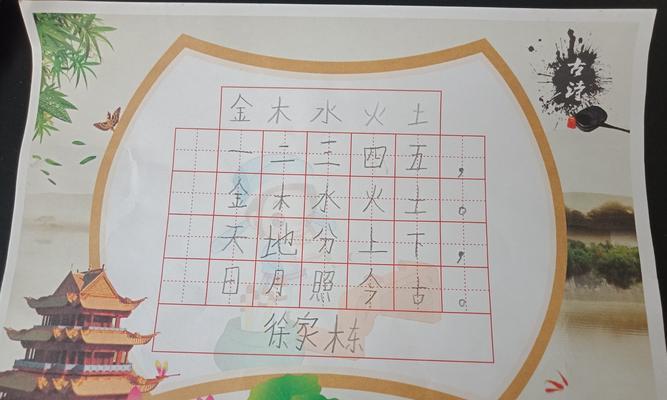 古诗
金木水火土
一二三四五，
金木水火土。
天地分上下，
日月照今古。
徐家栋